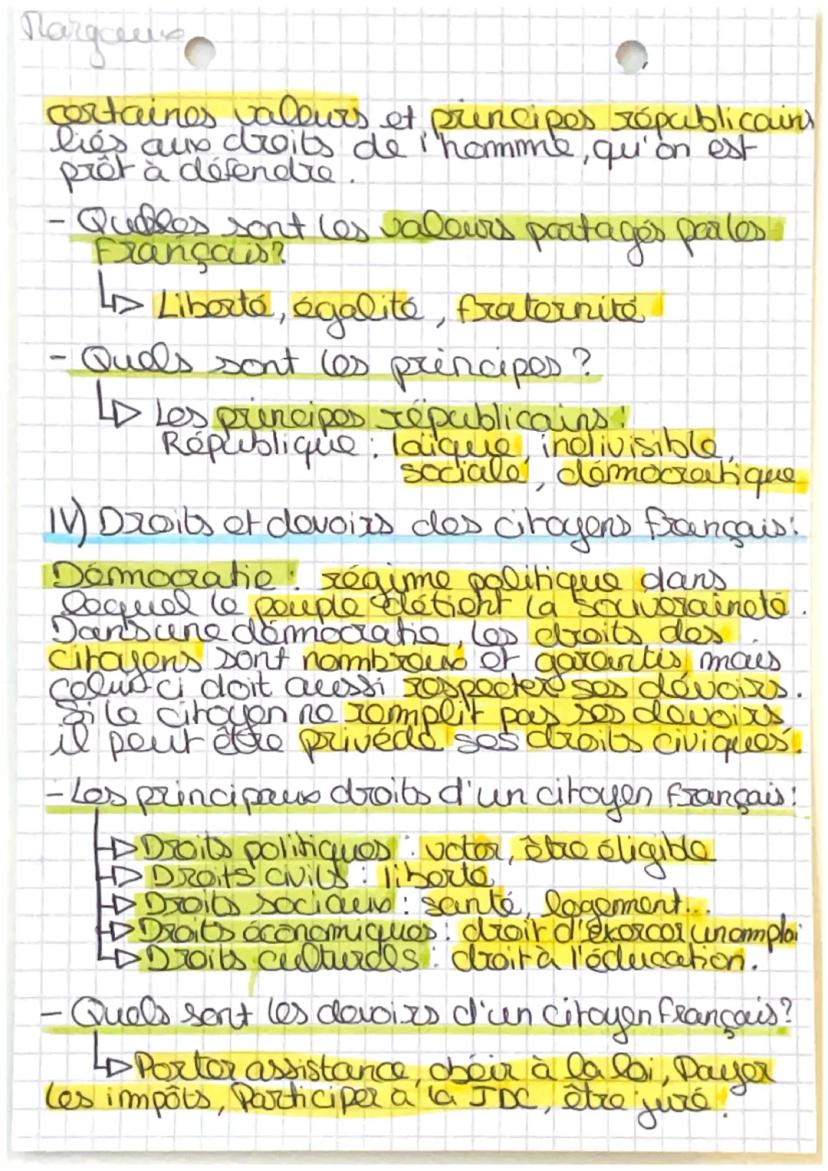 Margaux
certaines valeurs et principes républicains
liés aux droits de l'homme, qu'on est
prêt à défendre.
- Quelles sont les valeurs partagés par les
français?
Liberté, égalité, fraternité
- Quels sont les principes?
Les principes républicains:
République: laïque, indivisible,
sociale, démocratique
IV) Droits et devoirs des citoyens français:
Démocratie: régime politique dans
lequel le peuple détient la souveraineté.
Dans une démocratie, les droits des
citoyens sont nombreux et garantis, mais
celui-ci doit aussi respecter ses devoirs.
Si le citoyen ne remplit pas ses devoirs,
il peut être privé de ses droits civiques.
- Les principaux droits d'un citoyen français:
Droits politiques: voter, être éligible
Droits civils: liberté
Droits sociaux: santé, logement...
Droits économiques: droit d'exercer un emploi
Droits culturels: droit à l'éducation.
- Quels sont les devoirs d'un citoyen français?
Porter assistance, obéir à la loi, Payer
les impôts, Participer à la JDC, être juré.